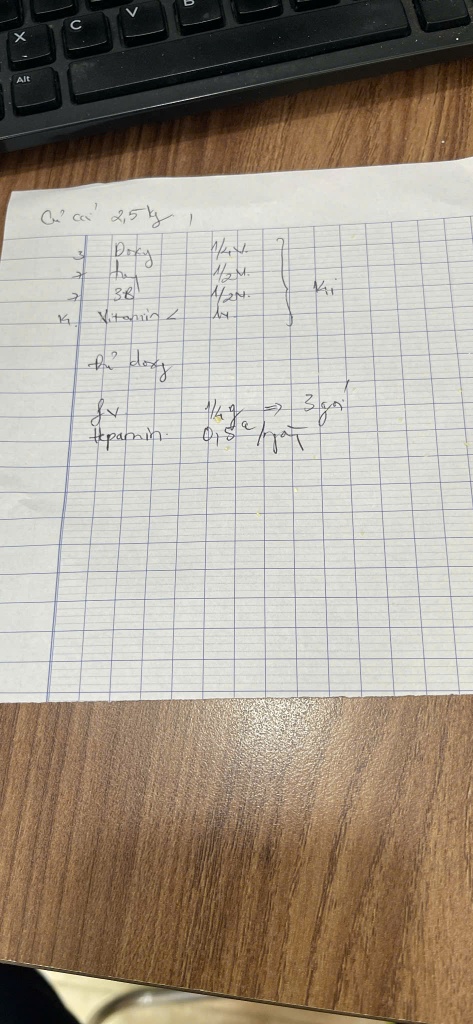 X C V B
Alt
Củ cải 2,5 kg
3 Doxy 1/4v.
2 1/2v.
2 3B 1/2v.
K. Vitamin C 1v
Đủ doxy
fv 1/4g => 3 gói
Hepamin 0,5c /ngày